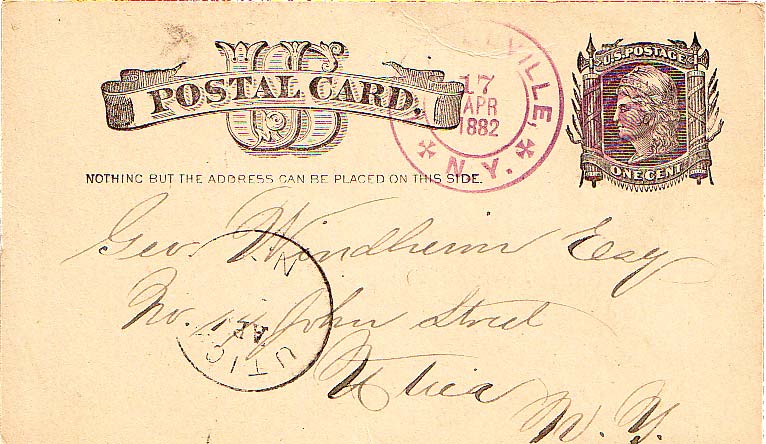 US
POSTAL CARD.
NOTHING BUT THE ADDRESS CAN BE PLACED ON THIS SIDE.
VILLE,
17
APR
1882
N.Y.
U.S. POSTAGE
ONE CENT
Geo. Windheim Esq
No. John Street
Utica
N. Y.
UTICA
N